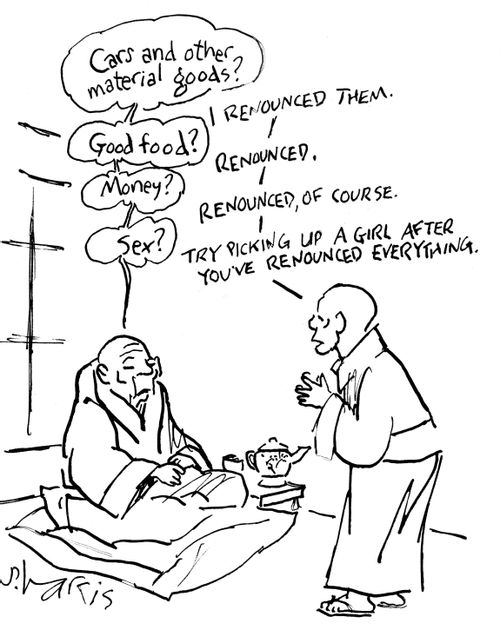 Cars and other
material goods?
I RENOUNCED THEM.
Good food?
RENOUNCED.
Money?
RENOUNCED, OF COURSE.
Sex?
TRY PICKING UP A GIRL AFTER
YOU'VE RENOUNCED EVERYTHING.
S. harris